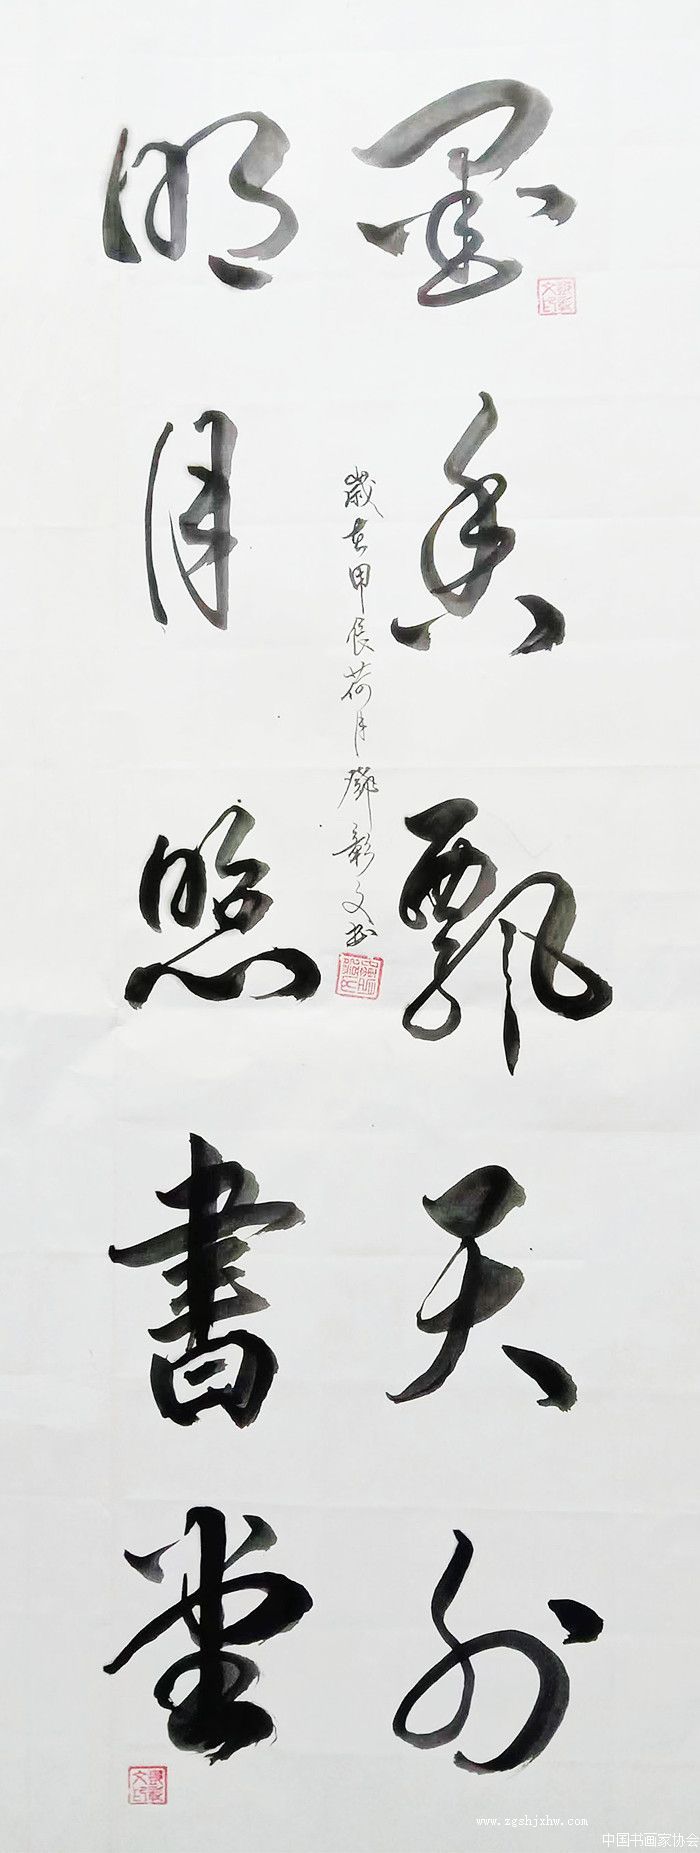 墨香飘天外
明月照書堂
歲在甲辰荷月鄧彰文書
www.zgshjxhw.com
中国书画家协会